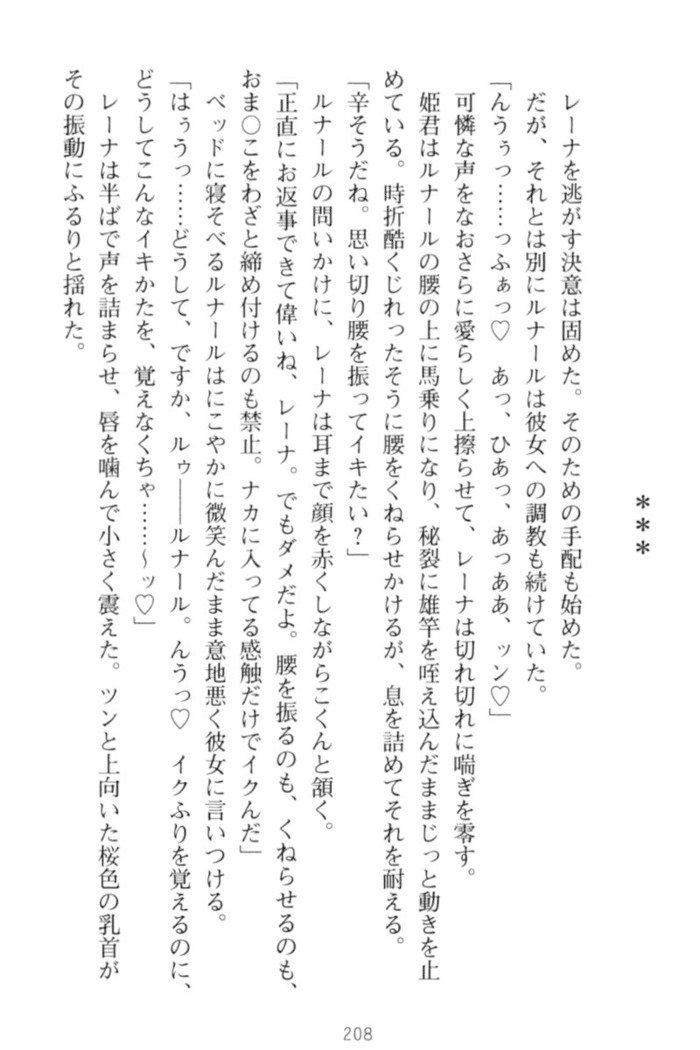 ＊＊＊
レーナを逃がす決意は固めた。そのための手配も始めた。
だが、それとは別にルナールは彼女への調教も続けていた。
「んうぅっ……っふぁっ♡　あっ、ひあっ、あっああ、ッン♡」
可憐な声をなおさらに愛らしく上擦らせて、レーナは切れ切れに喘ぎを零す。
姫君はルナールの腰の上に馬乗りになり、秘裂に雄竿を咥え込んだままじっと動きを止
めている。時折酷くじれったそうに腰をくねらせかけるが、息を詰めてそれを耐える。
「辛そうだね。思い切り腰を振ってイキたい？」
ルナールの問いかけに、レーナは耳まで顔を赤くしながらこくんと頷く。
「正直にお返事できて偉いね、レーナ。でもダメだよ。腰を振るのも、くねらせるのも、
おま〇こをわざと締め付けるのも禁止。ナカに入ってる感触だけでイクんだ」
ベッドに寝そべるルナールはにこやかに微笑んだまま意地悪く彼女に言いつける。
「はぅうっ……どうして、ですか、ルゥ――ルナール。んうっ♡　イクふりを覚えるのに、
どうしてこんなイキかたを、覚えなくちゃ……～ッ♡」
レーナは半ばで声を詰まらせ、唇を噛んで小さく震えた。ツンと上向いた桜色の乳首が
その振動にふるりと揺れた。
208